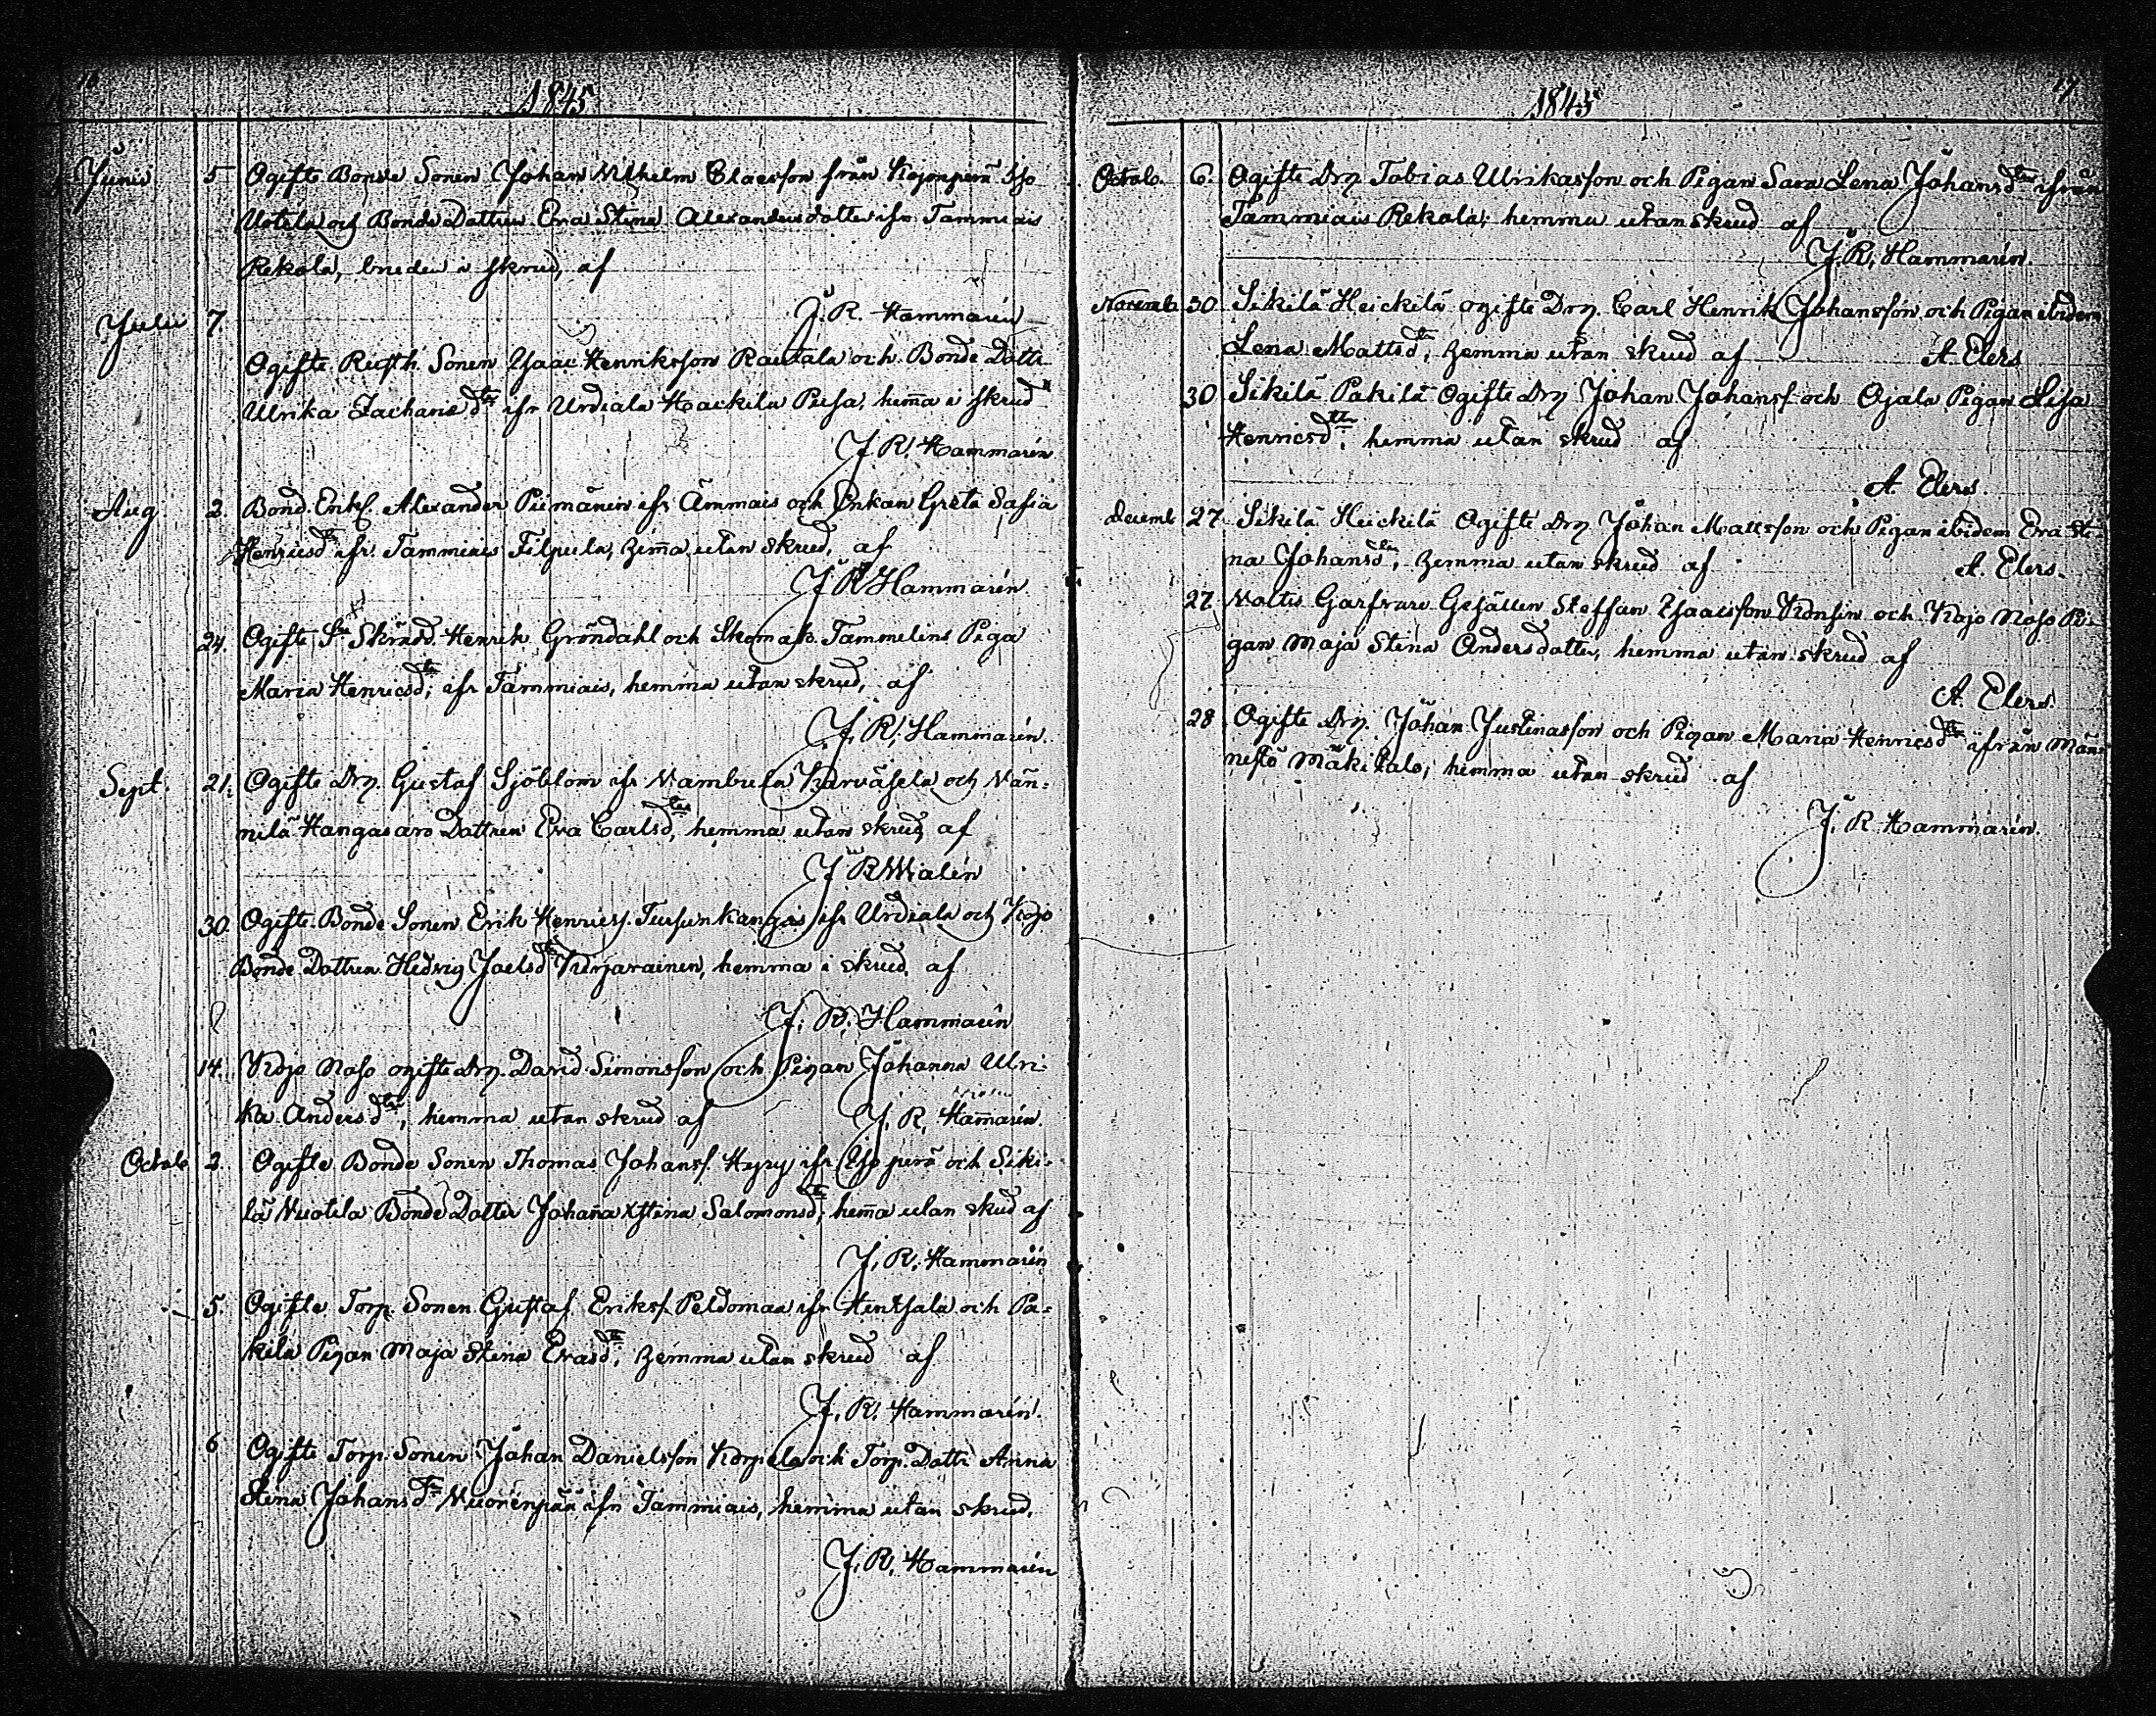 16
1845
Junii 5 Ogifte Bonde Sonen Johan Vilhelm Claesson från Kojonperä Sjo
Uotila och Bonde Dottren Eva Stina Alexandersdotter ifr. Tammiais
Rekola, bruden i skrud, af
Julii 7. J. R. Hammarén
Ogifte Rusth. Sonen Isaac Henriksson Rautala och Bonde Dottr.
Ulrika Zacharisdtr ifr Urdiala Hackila Pusa, hemma i skrud
J. R. Hammarén
Aug 2. Bond. Enkl. Alexander Piimänen ifr Ämmais och Enkan Greta Safia
Henricsdtr ifr. Tammiais Filpula, hemma utan skrud, af
J. R. Hammarén
24. Ogifte Skrädd. Henrik Gröndahl och Skomak. Tammelins Piga
Maria Henricsdtr, ifr Tammiais, hemma utan skrud, af
J. R. Hammarén.
Sept. 21. Ogifte Drg. Gustaf Sjöblom ifr Vambula och Vän=
nilä Hangasaro Dottren Eva Carlsdtr, hemma utan skrud, af
J R Wialén
30. Ogifte Bonde Sonen Erik Henricss. Tursunkangas ifr Urdiala och Kojo
Bonde Dottren Hedvig Joelsdtr Kurjarainen, hemma i skrud, af
J. R. Hammarén
14. Kojo Naso ogifte Drg. David Simonsson och Pigan Johanna Ulri=
ka Andersdtr, hemma utan skrud af J. R. Hammarén.
Octob 2. Ogifte Bonde Sonen Thomas Johanss. Hyry ifr perä och Siki=
lä Nuotila Bonde Dotter Johanna Xstina Salomonsdtr, hemma utan skrud af
J. R. Hammarén
5. Ogifte Torp. Sonen Gustaf Erikss. Peldomaa ifr Hentsala och Pa=
kila Pigan Maja Stina Evasdtr, hemma utan skrud af
J. R. Hammarén.
6 Ogifte Torp. Sonen Johan Danielsson Korpela och Torp. Dottr Anna
Stina Johansdtr Vuorenpää ifr Tammiais, hemma utan skrud,
J. R. Hammarén
17
1845
Octob. 6. Ogifte Drg Tobias Ulrikasson och Pigan Sara Lena Johansdtr ifrån
Tammiais Rekola, hemma utan skrud af
J. R. Hammarén.
Novemb. 30 Sikilä Heickilä ogifte Drg. Carl Henrik Johansson och Pigan ibidem
Lena Mattsdtr, hemma utan skrud af A Elers
30 Sikilä Pakilä Ogifte Drg Johan Johanss och Ojala Pigan Lisa
Henricsdtr, hemma utan skrud af
A. Elers.
Decemb 27 Sikilä Heickilä Ogifte Drg Johan Mattsson och Pigan ibidem Eva Sti=
na Johansdtr, hemma utan skrud af A. Elers.
27 Garfvare Gesällen Steffan Isaacsson och Kojo Naso Pi=
gan Maja Stina Andersdotter, hemma utan skrud af
A. Elers.
28 Ogifte Drg. Johan Justinasson och Pigan Maria Henricsdtr ifrån Män=
nistö Mäkitalo, hemma utan skrud af
J. R. Hammarén.